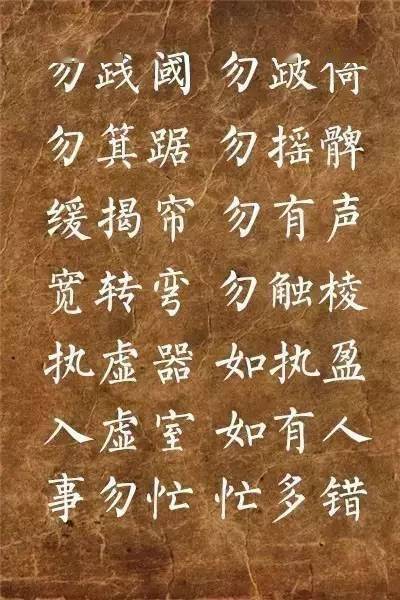 勿践阈 勿跛倚
勿箕踞 勿摇髀
缓揭帘 勿有声
宽转弯 勿触棱
执虚器 如执盈
入虚室 如有人
事勿忙 忙多错